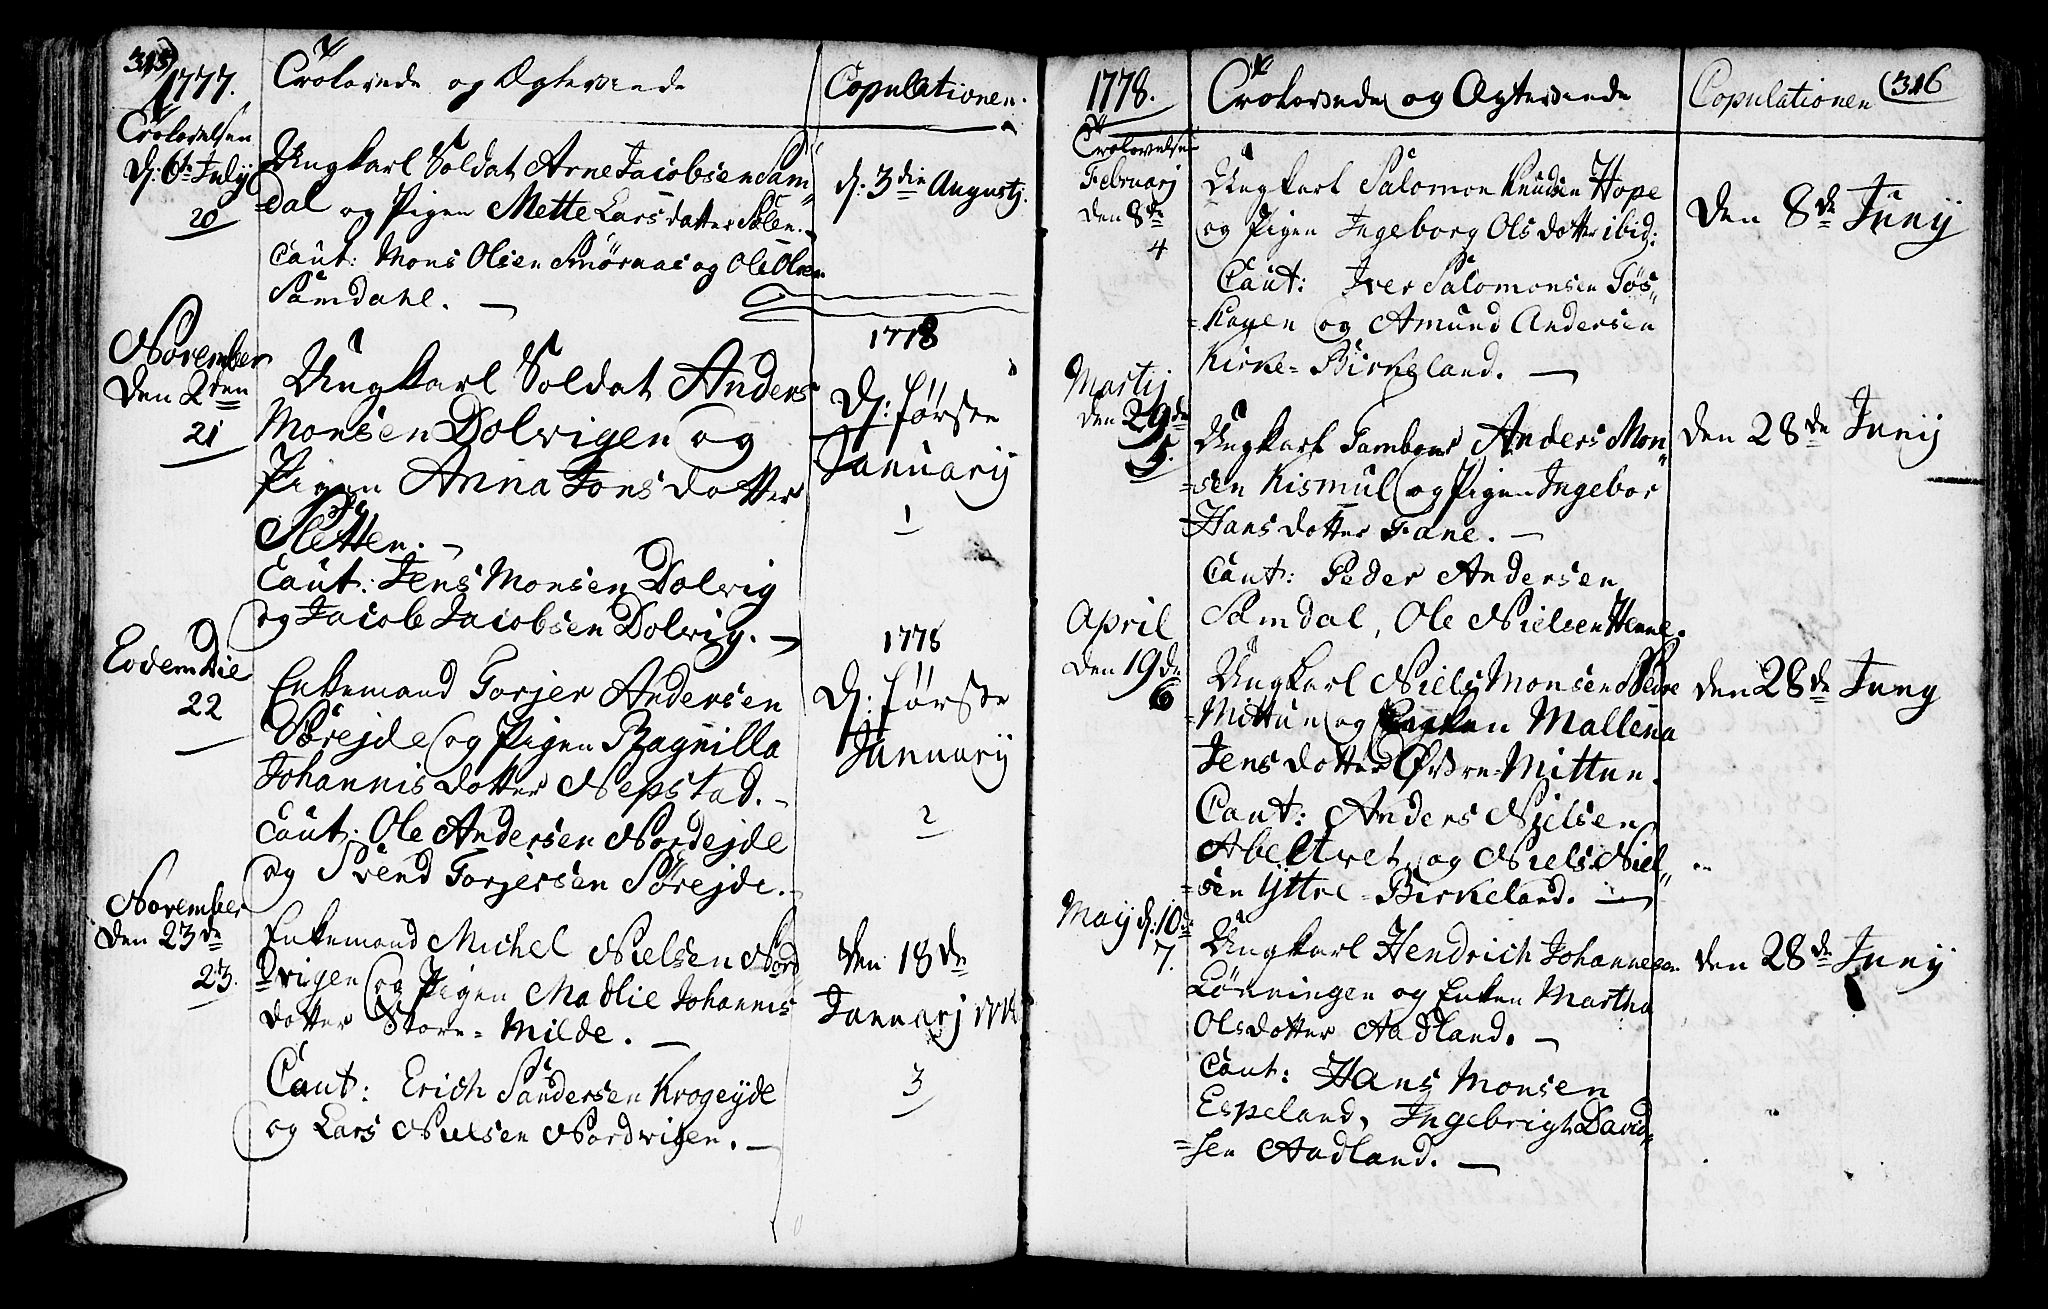 315)
1777.
Trolovede og Ægteviede
Copulationen.
Trolovelsen
D: 6te July
20
Ungkarl Soldat Arne Jacobsen Sam„
=dal og Pigen Mette Larsdatter Sølen.
Caut: Mons Olsen Smørnaas og Ole Olsen
Samdahl. —
d: 3die Augustj.
November
Den 2den
21
Ungkarl Soldat Anders
Monsen Dolvigen og
Pigen Anna Jonsdotter
Sletten. —
Caut: Jens Monsen Dolvig
og Jacob Jacobsen Dolvig. —
1778
D: første
Januarij
1
Eodem Die
22
Enkemand Torjer Andersen
Sørejde og Pigen Ragnilla
Johannisdotter Nepstad. —
Caut: Ole Andersen Nordejde
og Svend Torjersen Sørejde. —
1778
D: første
Januarij
2
November
Den 23de
23.
Enkemand Michel Nielsen Nord
=vigen og Pigen Madlie Johannis
dotter Store=Milde. —
Caut: Erich Sandersen Krogeyde
og Lars Nielsen Nordvigen. —
Den 18de
Januarj 1778
3
1778.
Trolovede og Ægteviede
Copulationen
(316
Trolovelsen
Februarj
den 8de
4
Ungkarl Salomon Knudsen Hope
og Pigen Ingeborg Olsdotter ibid:
Caut: Iver Salomonsen Tøs„
=kagen og Amund Andersen
Kirke=Birkeland. —
Den 8de Juny
Martij
den 29de
5.
Ungkarl Tambour Anders Mon„
=sen Kismul og Pigen Ingebor
Hansdotter Fane. —
Caut: Peder Andersen
Samdal, Ole Nielsen Henne.
Den 28de Junij
April
Den 19de
6
Ungkarl Niels Monsen Nedre
=Mittun og Enken Mallena
Jensdotter Øvre=Mittun.
Caut: Anders Nielsen
Abeltvet, og Niels Niel„
=sen Yttre=Birkeland. —
Den 28de Juny
Maij d: 10de
7.
Ungkarl Hendrich Johannesen
Lønningen og Enken Martha
Olsdotter Aadland. —
Caut: Hans Monsen
Espeland, Ingebrigt David„
=sen Aadland. —
Den 28de Juny